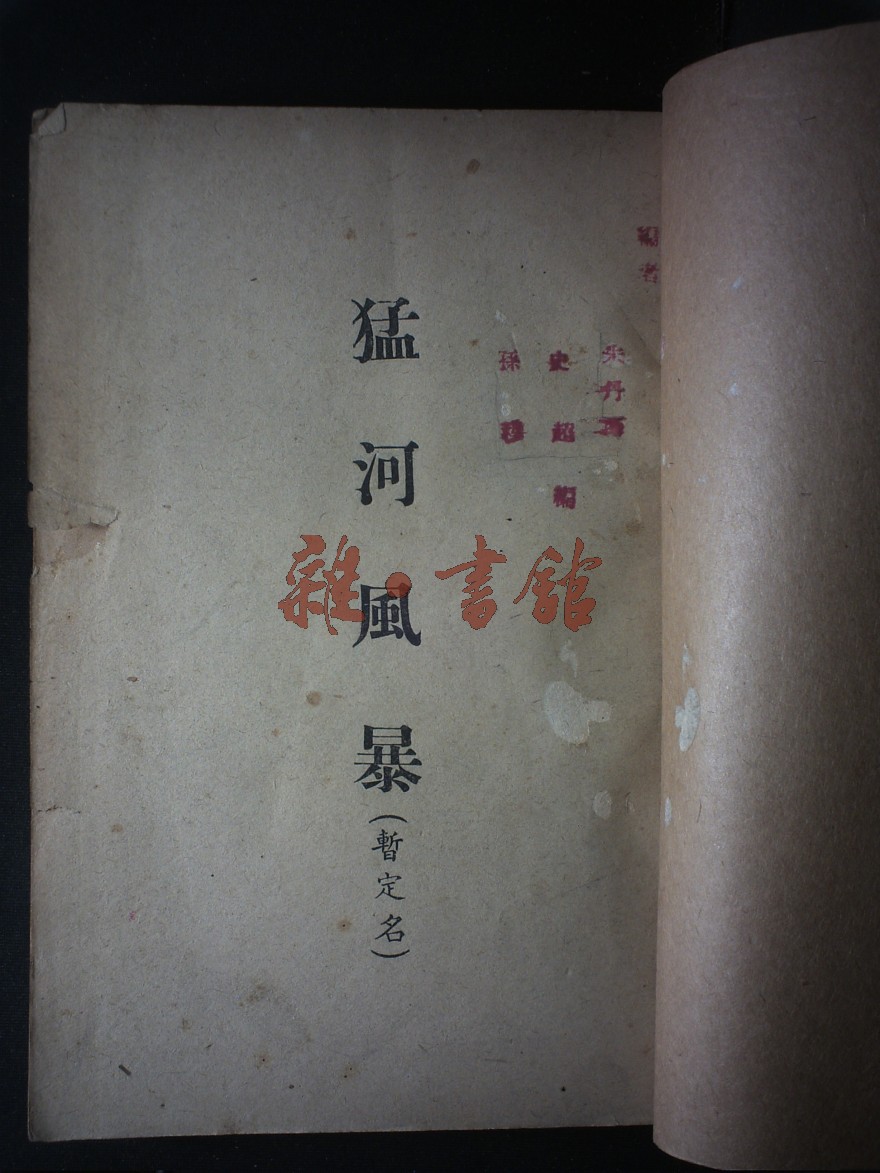 編者
朱丹西
史超編
孫穆
猛河風暴
(暫定名)
雜·書館